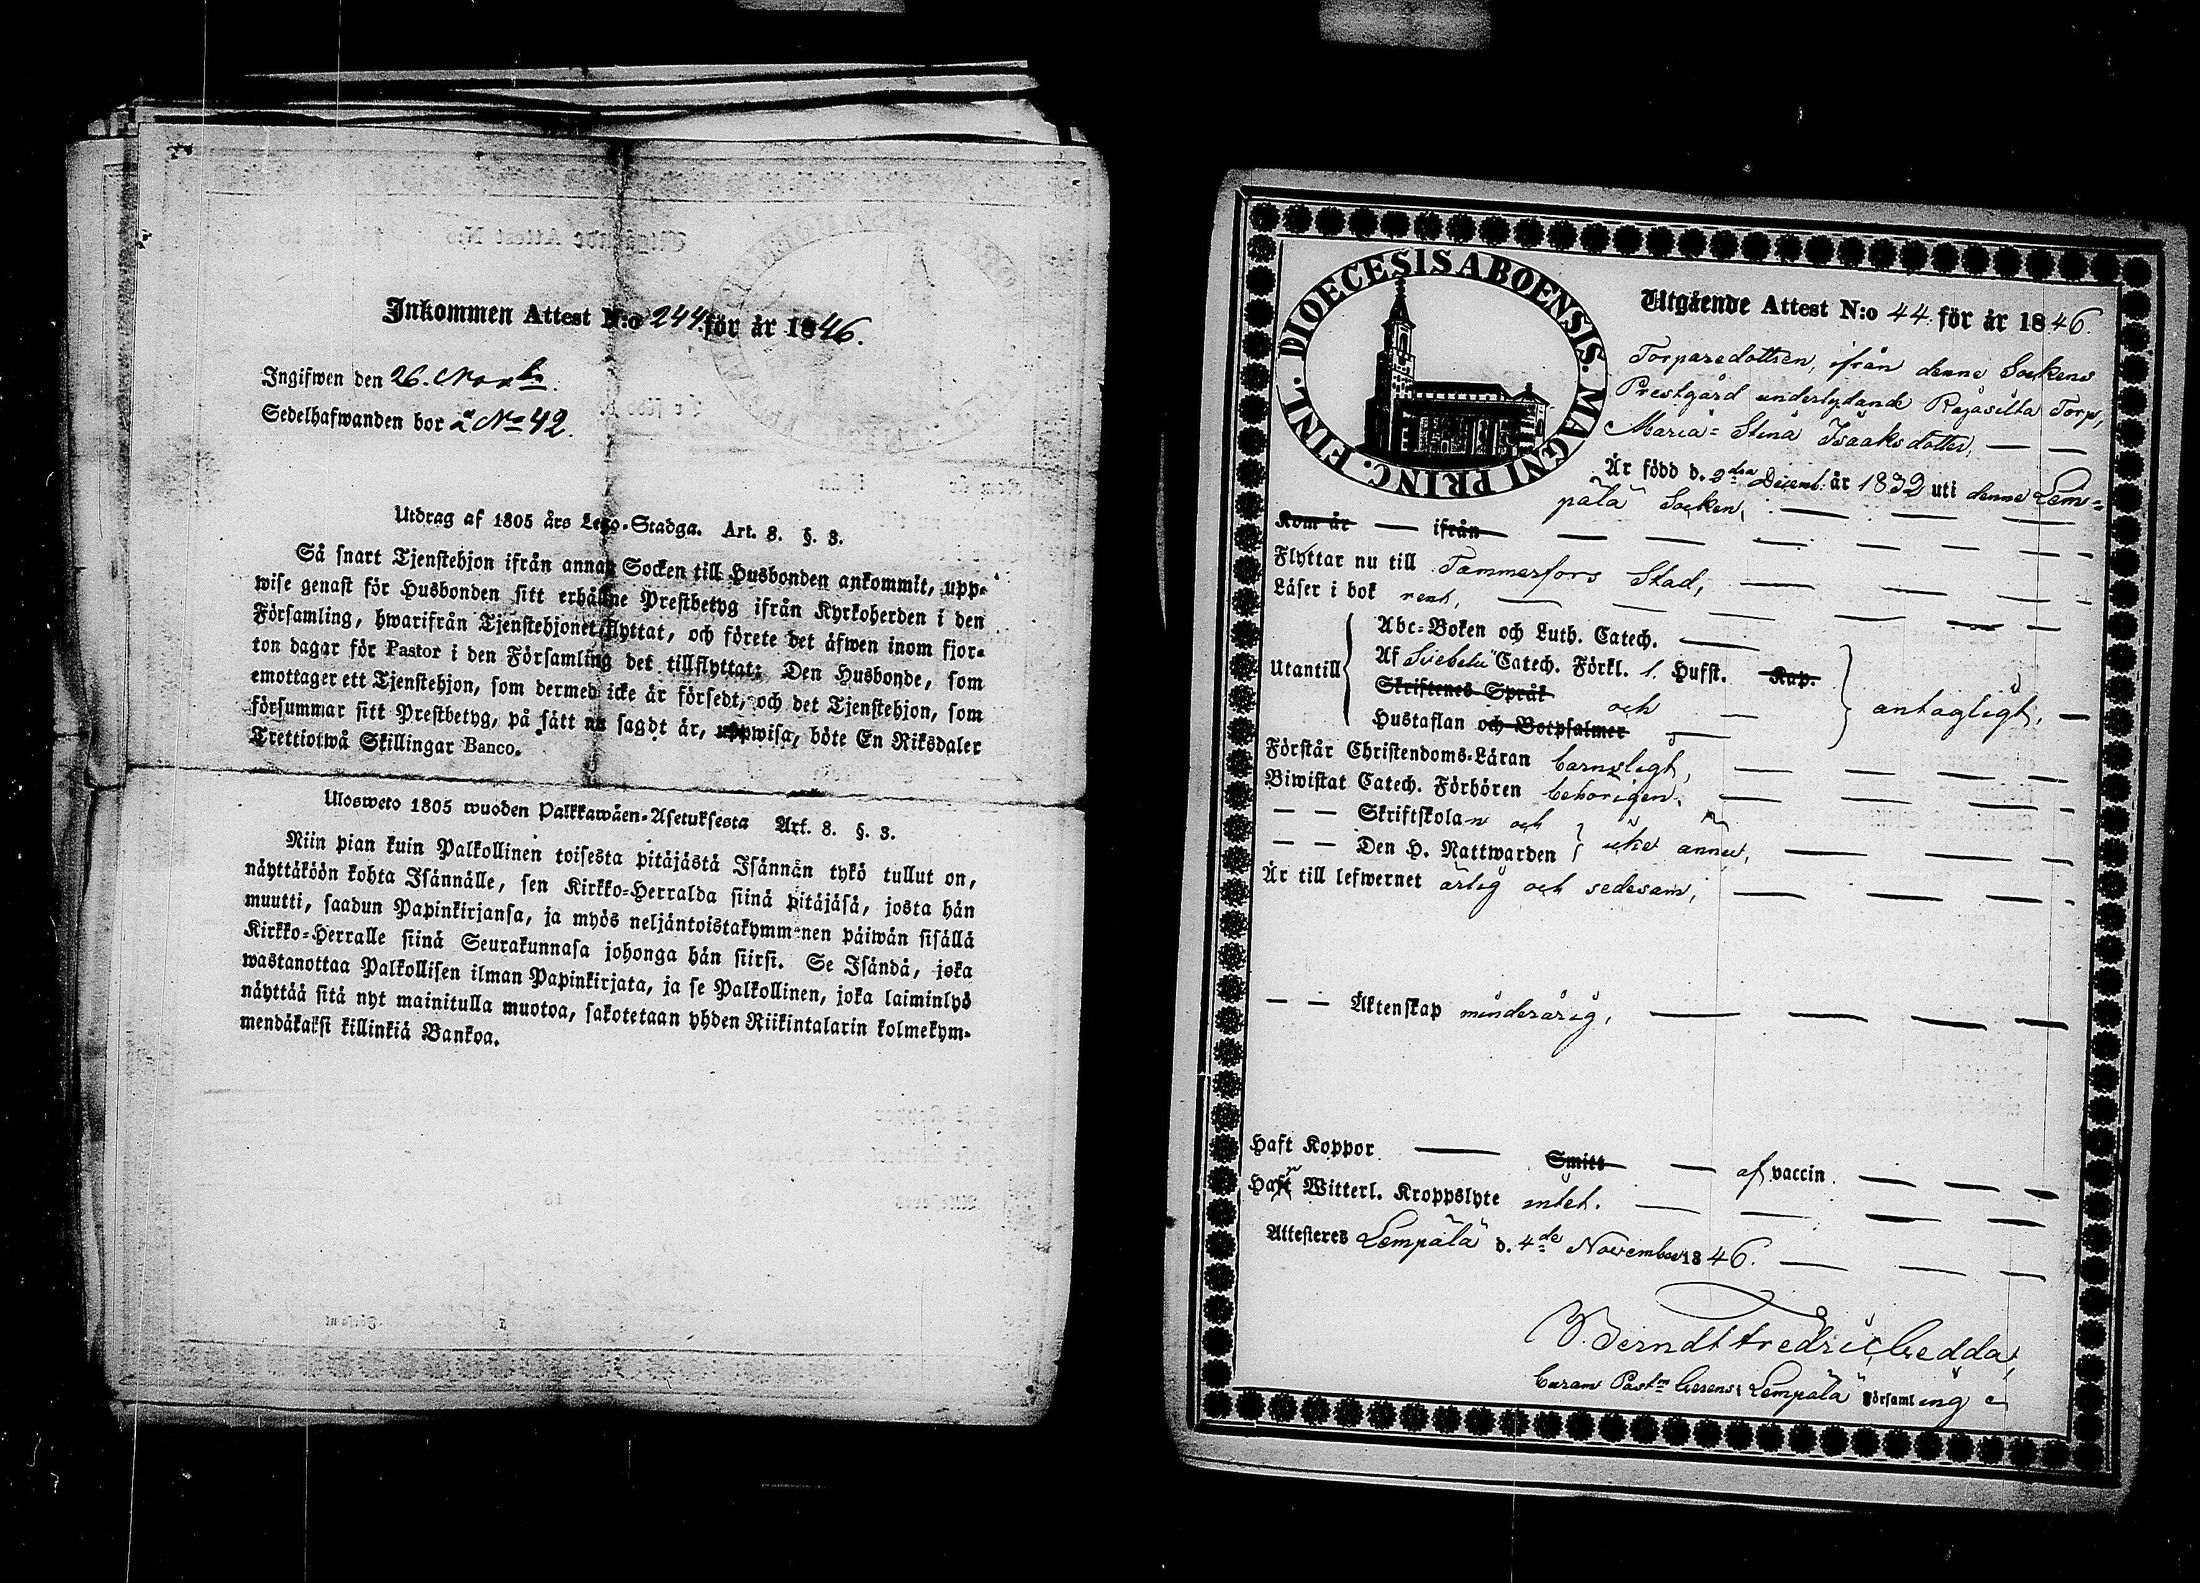 Inkommen Attest N:o 244 för år 1846.
Ingifwen den 26. Novbr.
Sedelhafwanden bor å No 42.
Utdrag af 1805 års Lego-Stadga. Art. 8. §. 3.
Så snart Tjenstehjon ifrån annan Socken till Husbonden ankommit, upp-
wise genast för Husbonden sitt erhållne Prestbetyg ifrån Kyrkoherden i den
Församling, hwarifrån Tjenstehjonet flyttat, och förete det äfwen inom fjor-
ton dagar för Pastor i den Församling det tillflyttat; Den Husbonde, som
emottager ett Tjenstehjon, som dermed icke är försedt, och det Tjenstehjon, som
försummar sitt Prestbetyg, på sätt nu sagdt är, uppwisa, böte En Riksdaler
Trettiotwå Skillingar Banco.
Ulosweto 1805 wuoden Palkkawäen-Asetuksesta Art. 8. §. 3.
Niin pian kuin Palkollinen toisesta pitäjästä Isännän tykö tullut on,
näyttäköön kohta Isännälle, sen Kirkko-Herralda siinä pitäjäsä, josta hän
muutti, saadun Papinkirjansa, ja myös neljäntoistakymmenen päiwän sisällä
Kirkko-Herralle siinä Seurakunnasa johonga hän siirsi. Se Isändä, joka
wastanottaa Palkollisen ilman Papinkirjata, ja se Palkollinen, joka laiminlyö
näyttää sitä nyt mainitulla muotoa, sakotetaan yhden Riikintalarin kolmekym-
mendäkaksi killinkiä Bankoa.
DIOECESIS ABOENSIS. MAGNI PRINC. FINL.
Utgående Attest N:o 44 för år 1846.
Torparedottren, ifrån denne Sockens
Prestgård underlydande Rajasilta Torp,
Maria-Stina Isaaksdotter,
Är född d. 2dra Decemb. år 1832 uti denne Lem-
pälä Socken,
Kom år ifrån
Flyttar nu till Tammerfors Stad,
Läser i bok rent,
Abc-Boken och Luth. Catech.
Utantill Af Svebelii Catech. Förkl. 1. Hufst. Kap.
Skriftenes Språk och antagligt,
Hustaflan och Botpsalmer
Förstår Christendoms-Läran barnsligt,
Biwistat Catech. Förhören behörigen.
Skriftskolan och
Den H. Nattwarden icke ännu,
Är till lefwernet ärlig och sedesam,
Äktenskap minderårig,
Haft Koppor Smitt af vaccin
Har Witterl. Kroppslyte intet.
Attesteras Lempälä d. 4de November 1846.
Berndt Fredric Gedda,
Curam Past:m Gerens i Lempälä Församling